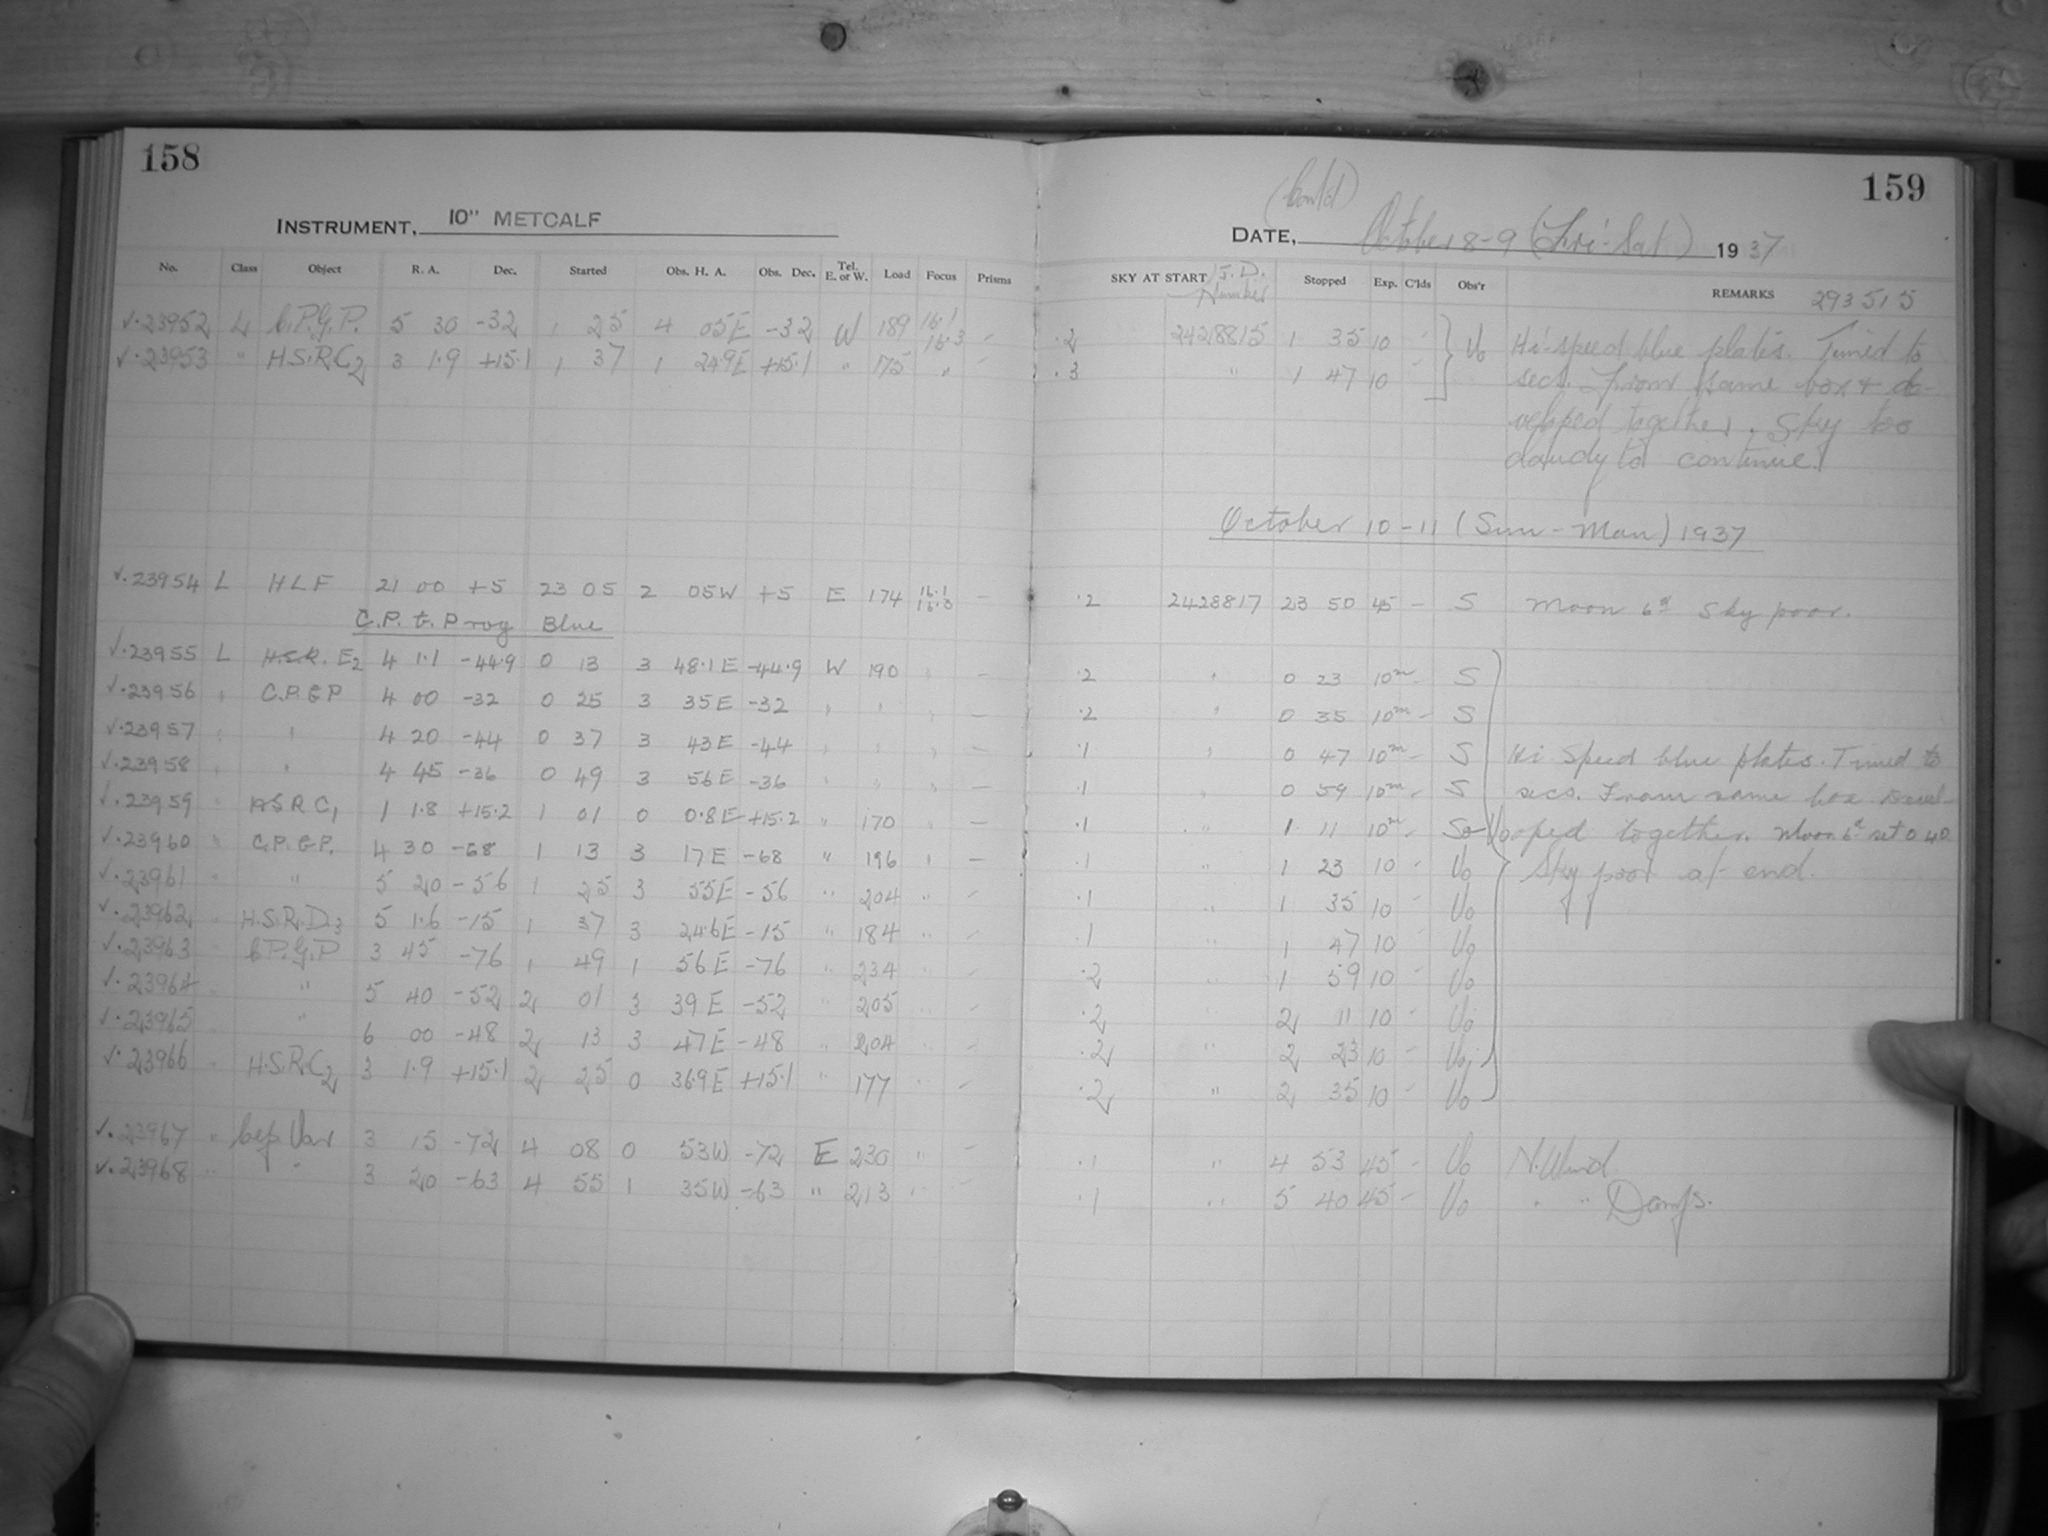 158
INSTRUMENT, 10" METCALF
No. Class Object R. A. Dec. Started Obs. H. A. Obs. Dec. Tel. E. or W. Load Focus Prisms
✓.23952 L C.P.G.P. 5 30 -32 1 25 4 05E -32 W 189 16.1 16.3 -
✓.23953 " H.S.R.C2 3 1.9 +15.1 1 37 1 24.9E +15.1 " 175 " -
✓.23954 L HLF 21 00 +5 23 05 2 05W +5 E 174 16.1 16.3 -
C.P.G. Prog Blue
✓.23955 L H.S.R. E2 4 1.1 -44.9 0 13 3 48.1E -44.9 W 190 " -
✓.23956 " C.P.G.P 4 00 -32 0 25 3 35E -32 " " " -
✓.23957 " " 4 20 -44 0 37 3 43E -44 " " " -
✓.23958 " " 4 45 -36 0 49 3 56E -36 " " " -
✓.23959 " HSRC1 1 1.8 +15.2 1 01 0 0.8E +15.2 " 170 " -
✓.23960 " C.P.G.P. 4 30 -68 1 13 3 17E -68 " 196 " -
✓.23961 " " 5 20 -56 1 25 3 55E -56 " 204 " -
✓.23962 " H.S.R.D3 5 1.6 -15 1 37 3 24.6E -15 " 184 " -
✓.23963 " C.P.G.P 3 45 -76 1 49 1 56E -76 " 234 " -
✓.23964 " " 5 40 -52 2 01 3 39E -52 " 205 " -
✓.23965 " " 6 00 -48 2 13 3 47E -48 " 204 " -
✓.23966 " H.S.R.C2 3 1.9 +15.1 2 25 0 36.9E +15.1 " 177 " -
✓.23967 " Cep Var 3 15 -72 4 08 0 53W -72 E 230 " -
✓.23968 " " 3 20 -63 4 55 1 35W -63 " 213 " -
159
(Cont'd)
DATE, October 8-9 (Fri-Sat) 1937
SKY AT START J.D. Number Stopped Exp. C'lds Obs'r REMARKS 293515
.2 2428815 1 35 10 - Vo Hi-speed blue plates. Timed to
.3 " 1 47 10 - secs. From same box & de-
veloped together. Sky too
cloudy to continue.
October 10-11 (Sun-Mon) 1937
.2 2428817 23 50 45 - S Moon 6d Sky poor.
.2 " 0 23 10m - S
.2 " 0 35 10m - S
.1 " 0 47 10m - S Hi Speed blue plates. Timed to
.1 " 0 59 10m - S secs. From same box Devel-
.1 " 1 11 10m - S oped together. Moon 6d set 0 40
.1 " 1 23 10 - Vo Sky poor at end.
.1 " 1 35 10 - Vo
.1 " 1 47 10 - Vo
.2 " 1 59 10 - Vo
.2 " 2 11 10 - Vo
.2 " 2 23 10 - Vo
.2 " 2 35 10 - Vo
.1 " 4 53 45 - Vo N. Wind
.1 " 5 40 45 - Vo " " Damp.